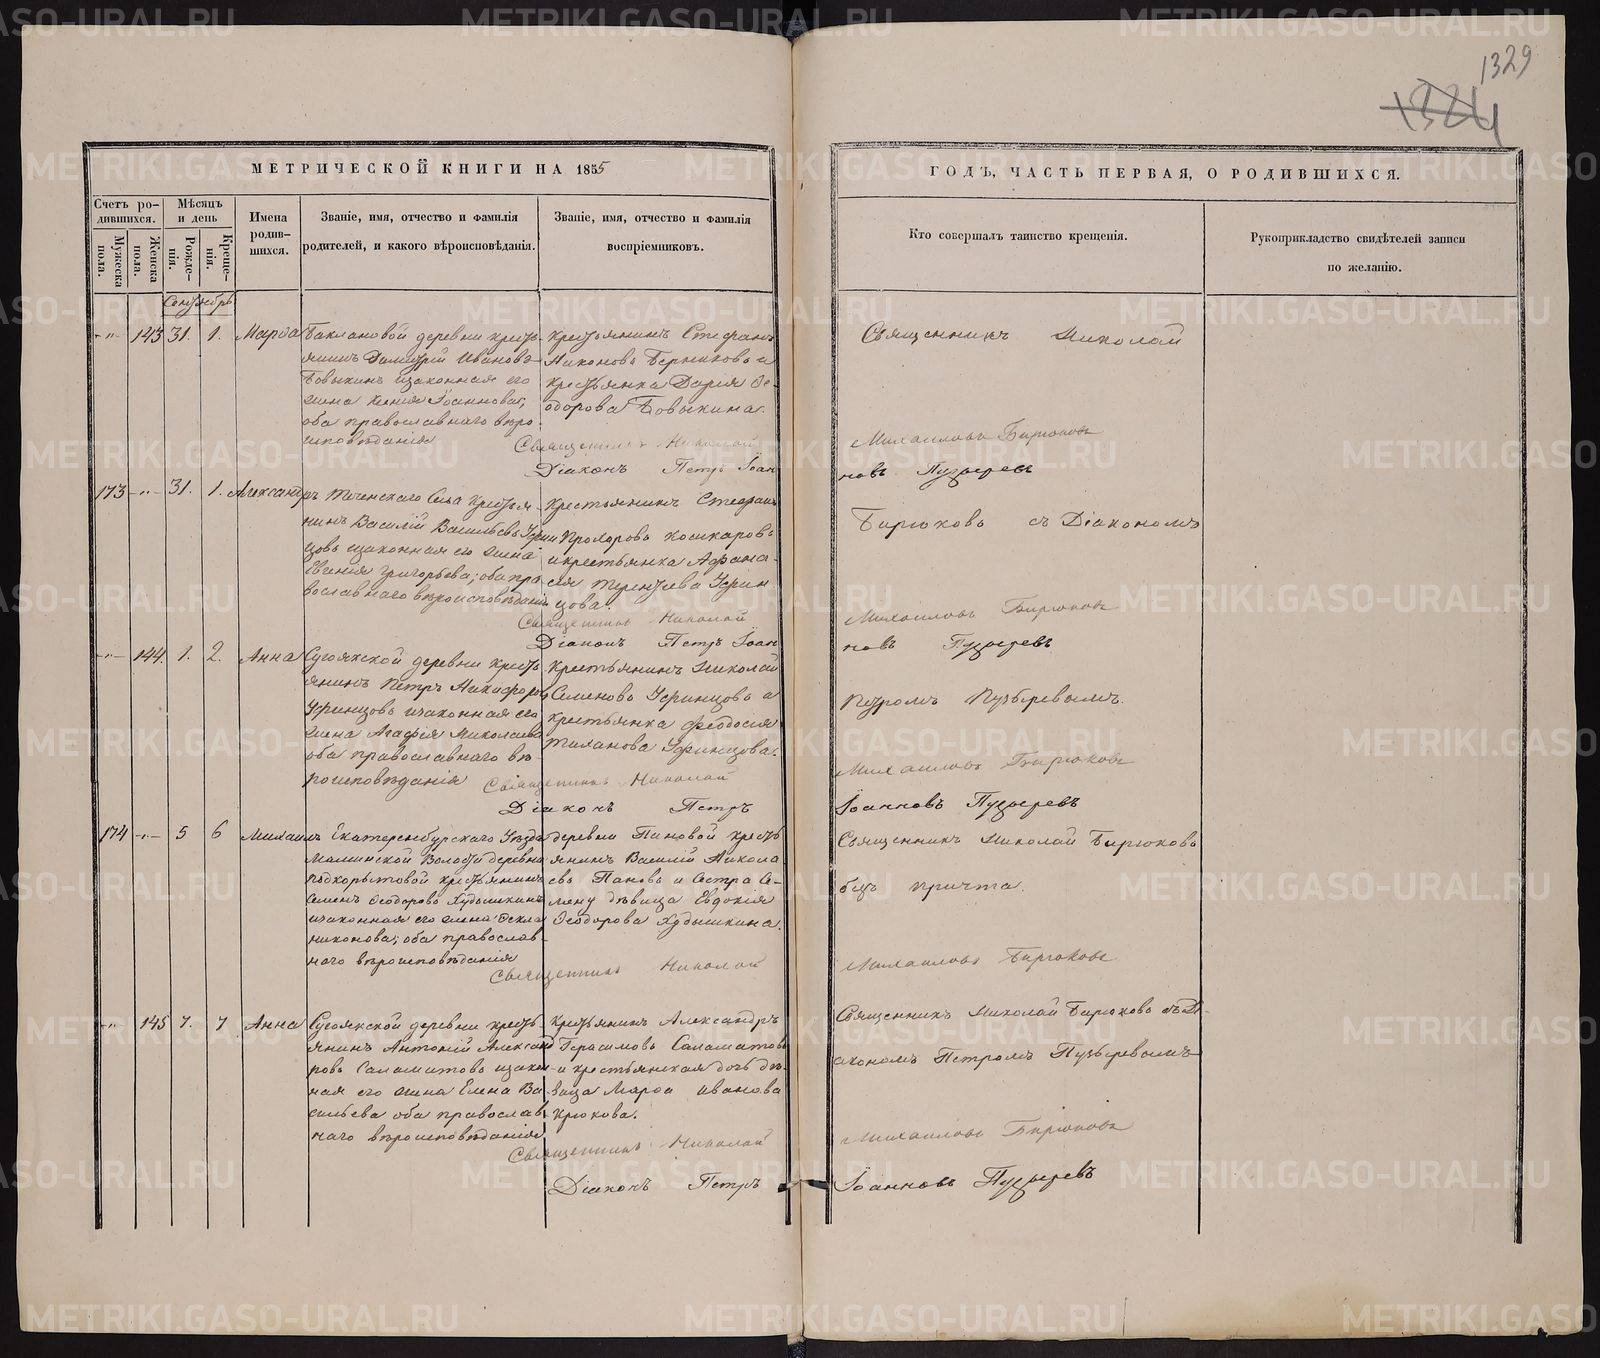 1329
1324
МЕТРИЧЕСКОЙ КНИГИ НА 1855
ГОДЪ, ЧАСТЬ ПЕРВАЯ, О РОДИВШИХСЯ.
Счетъ ро-
дившихся.
Мужеска пола.
Женска пола.
Мѣсяцъ
и день
Рожде-
нія.
Креще-
нія.
Имена
родив-
шихся.
Званіе, имя, отчество и фамилія
родителей, и какого вѣроисповѣданія.
Званіе, имя, отчество и фамилія
воспріемниковъ.
Кто совершалъ таинство крещенія.
Рукоприкладство свидѣтелей записи
по желанію.
Сентябрь
-"- 143 31. 1. Марѳа
Баклановой деревни кресть-
янинъ Димитрій Ивановъ
Бовыкинъ изаконная его
жена Ксенія Іоаннова;
оба православнаго вѣро
исповѣданія
Крестьянинъ Стефанъ
Никоновъ Берниковъ и
крестьянка Дарія Ѳе-
одорова Бовыкина.
Священникъ Николай
Священникъ Николай
Михаиловъ Бирюковъ
Діаконъ Петръ Іоан
новъ Пузыревъ
173 -"- 31. 1. Александръ
Теченскаго Села Крестья-
нинъ Василій Васильевъ Уфин
цовъ изаконная его жена
Евгенія Григорьева; оба пра
вославнаго вѣроисповѣданія
Крестьянинъ Стефанъ
Прохоровъ Кошкаровъ
икрестьянка Афана-
сія Терентьева Уфин
цова.
Бирюковъ съ Діакономъ
Священникъ Николай
Михаиловъ Бирюковъ
Діаконъ Петръ Іоан
новъ Пузыревъ
-"- 144. 1. 2. Анна
Сугоякской деревни кресть
янинъ Петръ Никифоровъ
Уфинцовъ изаконная его
жена Агафія Николаева
оба православнаго вѣ-
роисповѣданія
Крестьянинъ Николай
Семеновъ Уфинцовъ и
крестьянка Феодосія
Уфинцова.
Петромъ Пузыревымъ.
Священникъ Николай
Михаиловъ Бирюковъ
Діаконъ Петръ
Іоанновъ Пузыревъ
174 -"- 5 6 Михаилъ
Екатеренбургскаго Уѣзда
Маминской Волости деревни
Подкорытовой крестьянинъ
Семенъ Ѳеодоровъ Худышкинъ
изаконная его жена Ѳекла
Никонова; оба православ-
наго вѣроисповѣданія
деревни Пановой кресть
янинъ Василій Никола
евъ Пановъ и Сестра Се-
мену дѣвица Евдокія
Ѳеодорова Худышкина.
Священникъ Николай Бирюковъ
безъ причта.
Священникъ Николай
Михаиловъ Бирюковъ
-"- 145 7. 7 Анна
Сугоякской деревни кресть
янинъ Антоній Александ
ровъ Саламатовъ изакон-
ная его жена Елена Ва
сильева оба православ
наго вѣроисповѣданія
Крестьянинъ Александръ
Герасимовъ Саламатовъ
и крестьянская дочь дѣ-
вица Марѳа Иванова
Крюкова.
Священникъ Николай Бирюковъ съ Ді-
акономъ Петромъ Пузыревымъ
Священникъ Николай
Михаиловъ Бирюковъ
Діаконъ Петръ
Іоанновъ Пузыревъ
METRIKI.GASO-URAL.RU